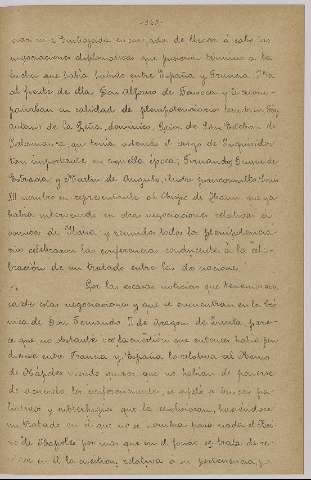 -343-
una embajada encargada de llevar á cabo las
negociaciones diplomáticas que pusieran término á la
lucha que había habido entre España y Francia. Iba
al frente de ella, Don Alfonso de y le acom-
pañaban en calidad de plenipotenciarios Fray
Antonio de la Peña, dominico, Prior de San Esteban de
Salamanca que tenía además el cargo de Inquisidor
importante en aquella época; Fernando Duque de
Estrada y Martin de Angulo,
XII nombró en representante al Obispo de que ya
había intervenido en otras negociaciones relativas á
asuntos de Italia y reunidos todos los plenipotencia-
rios celebraron las conferencias conducentes á la cele-
bración de un tratado entre las dos naciones.
Por las escasas noticias que tenemos acer-
ca de estas negociaciones y que se encuentran en la Cró-
nica de Don Fernando V de Aragon de Zurita pare-
ce que no obstante ser la cuestión que entonces había pen-
diente entre Francia y España la relativa al Reino
de Nápoles viendo quizás que no habían de ponerse
de acuerdo los conferenciantes, se apeló á buscar pa-
liativos y subterfugios que la , haciéndose
un tratado en el que no se nombra para nada el Rei-
no de Nápoles por mas que en el fondo se trata de re-
en él la cuestion relativa á su pertenencia, pe-